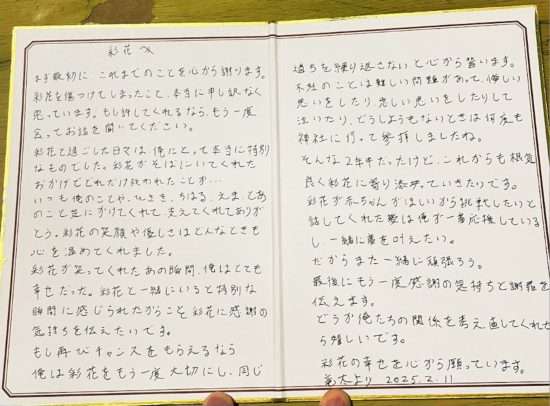 彩花へ
まず最初に これまでのことを心から謝ります。
彩花を傷つけてしまったこと、本当に申し訳なく
思っています。もし許してくれるなら、もう一度
会ってお話を聞いてください。
彩花と過ごした日々は俺にとって本当に特別
なものでした。彩花がそばにいてくれた
おかげでどれだけ救われたことか…
いつも俺のことや、ひさき、ちはる、えまとあ
のこと気にかけてくれて、支えてくれてありが
とう。彩花の笑顔や優しさはどんなときも
心を温めてくれました。
彩花が笑ってくれたあの瞬間、俺はとても
幸せだった。彩花と一緒にいると特別な
瞬間に感じられたからこそ彩花に感謝の
気持ちを伝えたいです。
もし再びチャンスをもらえるなら
俺は彩花をもう一度大切にし、同じ
過ちを繰り返さないと心から誓います。
不妊のことは難しい問題があって、悔しい
思いをしたり、悲しい思いをしたりして
泣いたり、どうしようもないときは何度も
神社に行って参拝しましたね。
そんな2年半だったけど、これからも根気
良く彩花に寄り添っていきたいです。
彩花が赤ちゃんがほしいから挑戦したいと
話してくれた夢は俺が一番応援している
し、一緒に夢を叶えたい。
だからまた一緒に頑張ろう。
最後にもう一度感謝の気持ちと謝罪を
伝えます。
どうか俺たちの関係を考え直してくれた
ら嬉しいです。
彩花の幸せを心から願っています。
太より 2025.2.11